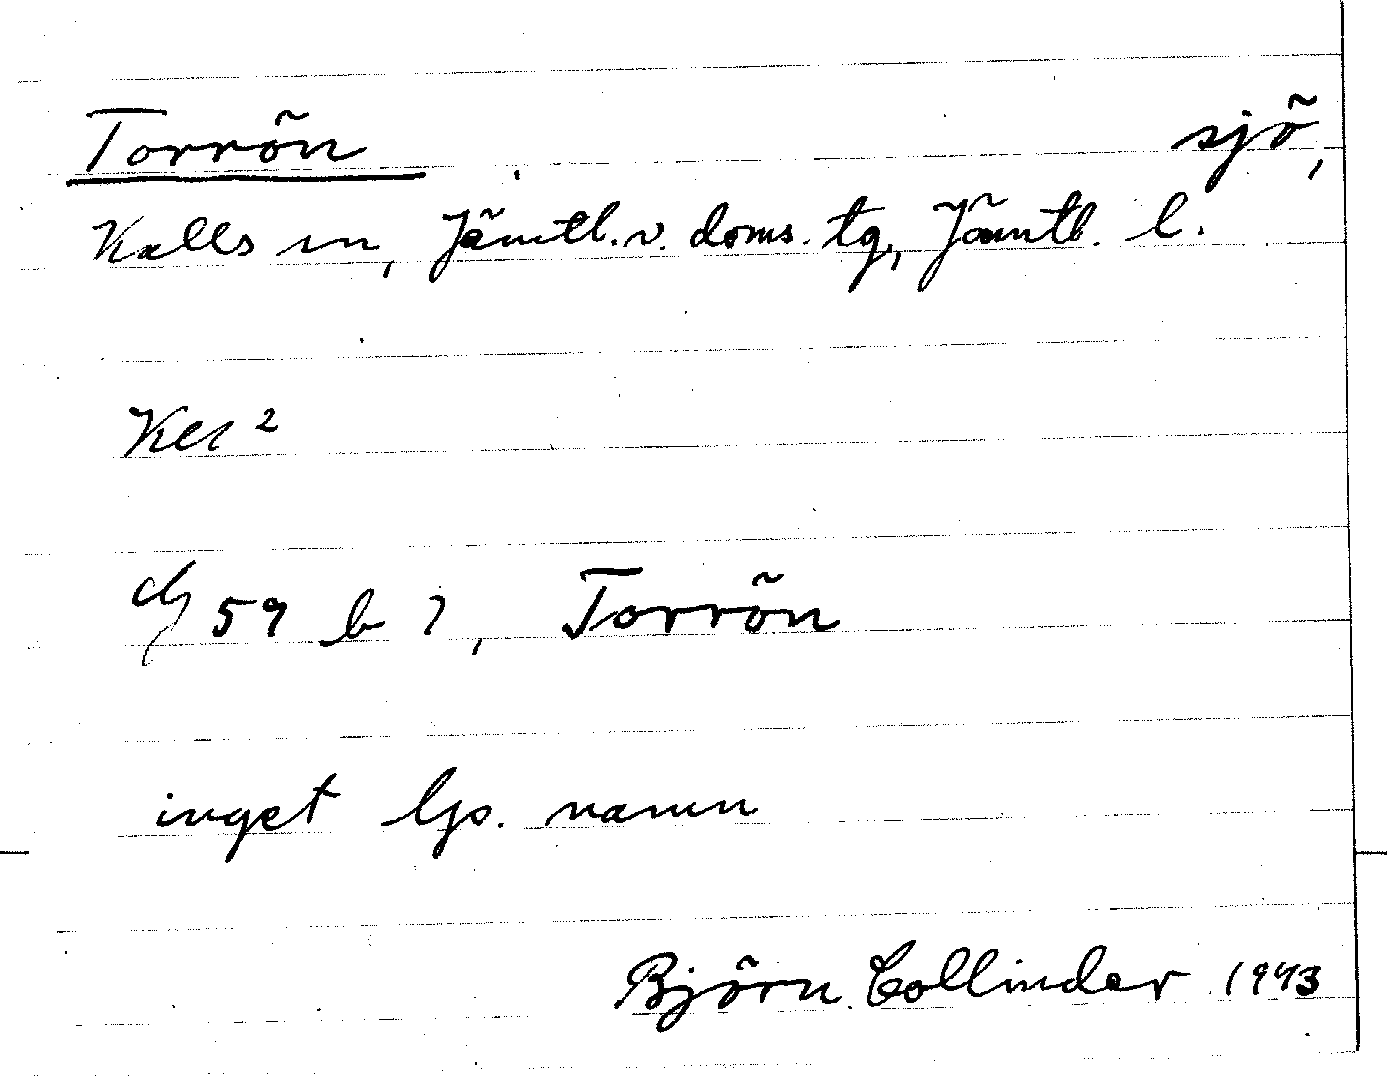 Torrön sjö,
Kalls sn, Jämtl. v. doms. tg, Jämtl. l.
Kls 2
59 b 7, Torrön
inget lps. namn
Björn Collinder 1943